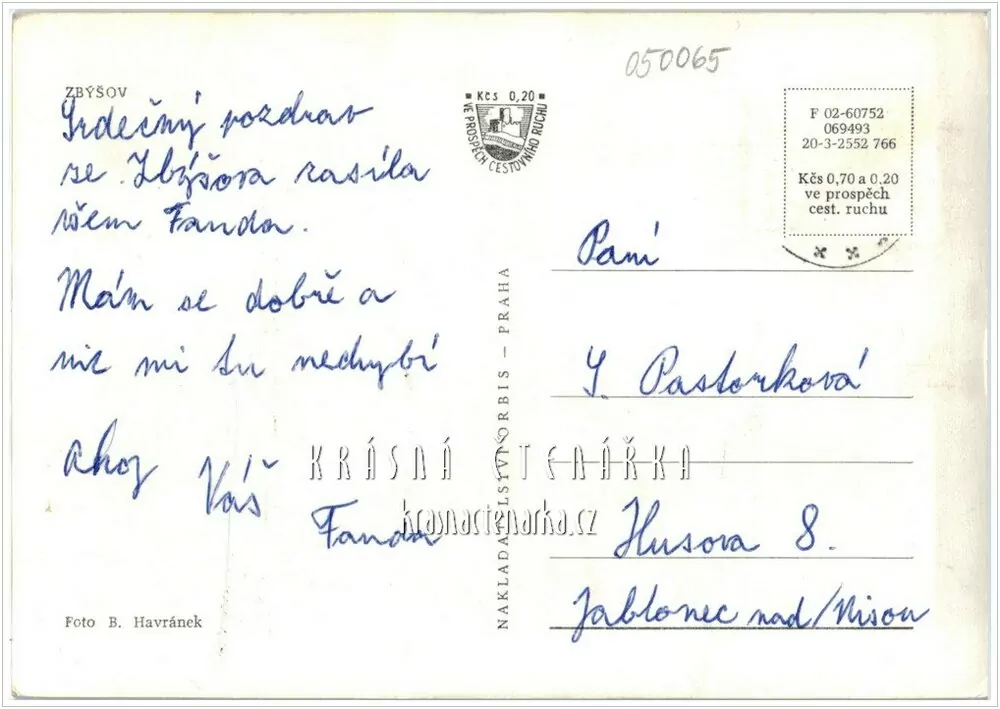 050065
ZBÝŠOV
Srdečný pozdrav
ze Zbýšova zasíla
všem Fanda.
Mám se dobře a
nic mi tu nechybí
Ahoj Váš
Fanda
Foto B. Havránek
Kčs 0,20
VE PROSPĚCH CESTOVNÍHO RUCHU
NAKLADATELSTVÍ ORBIS – PRAHA
F 02-60752
069493
20-3-2552 766
Kčs 0,70 a 0.20
ve prospěch
cest. ruchu
Paní
J. Pastorková
Husova 8.
Jablonec nad/Nisou
KRÁSNÁ ČTENÁŘKA
krasnactenarka.cz